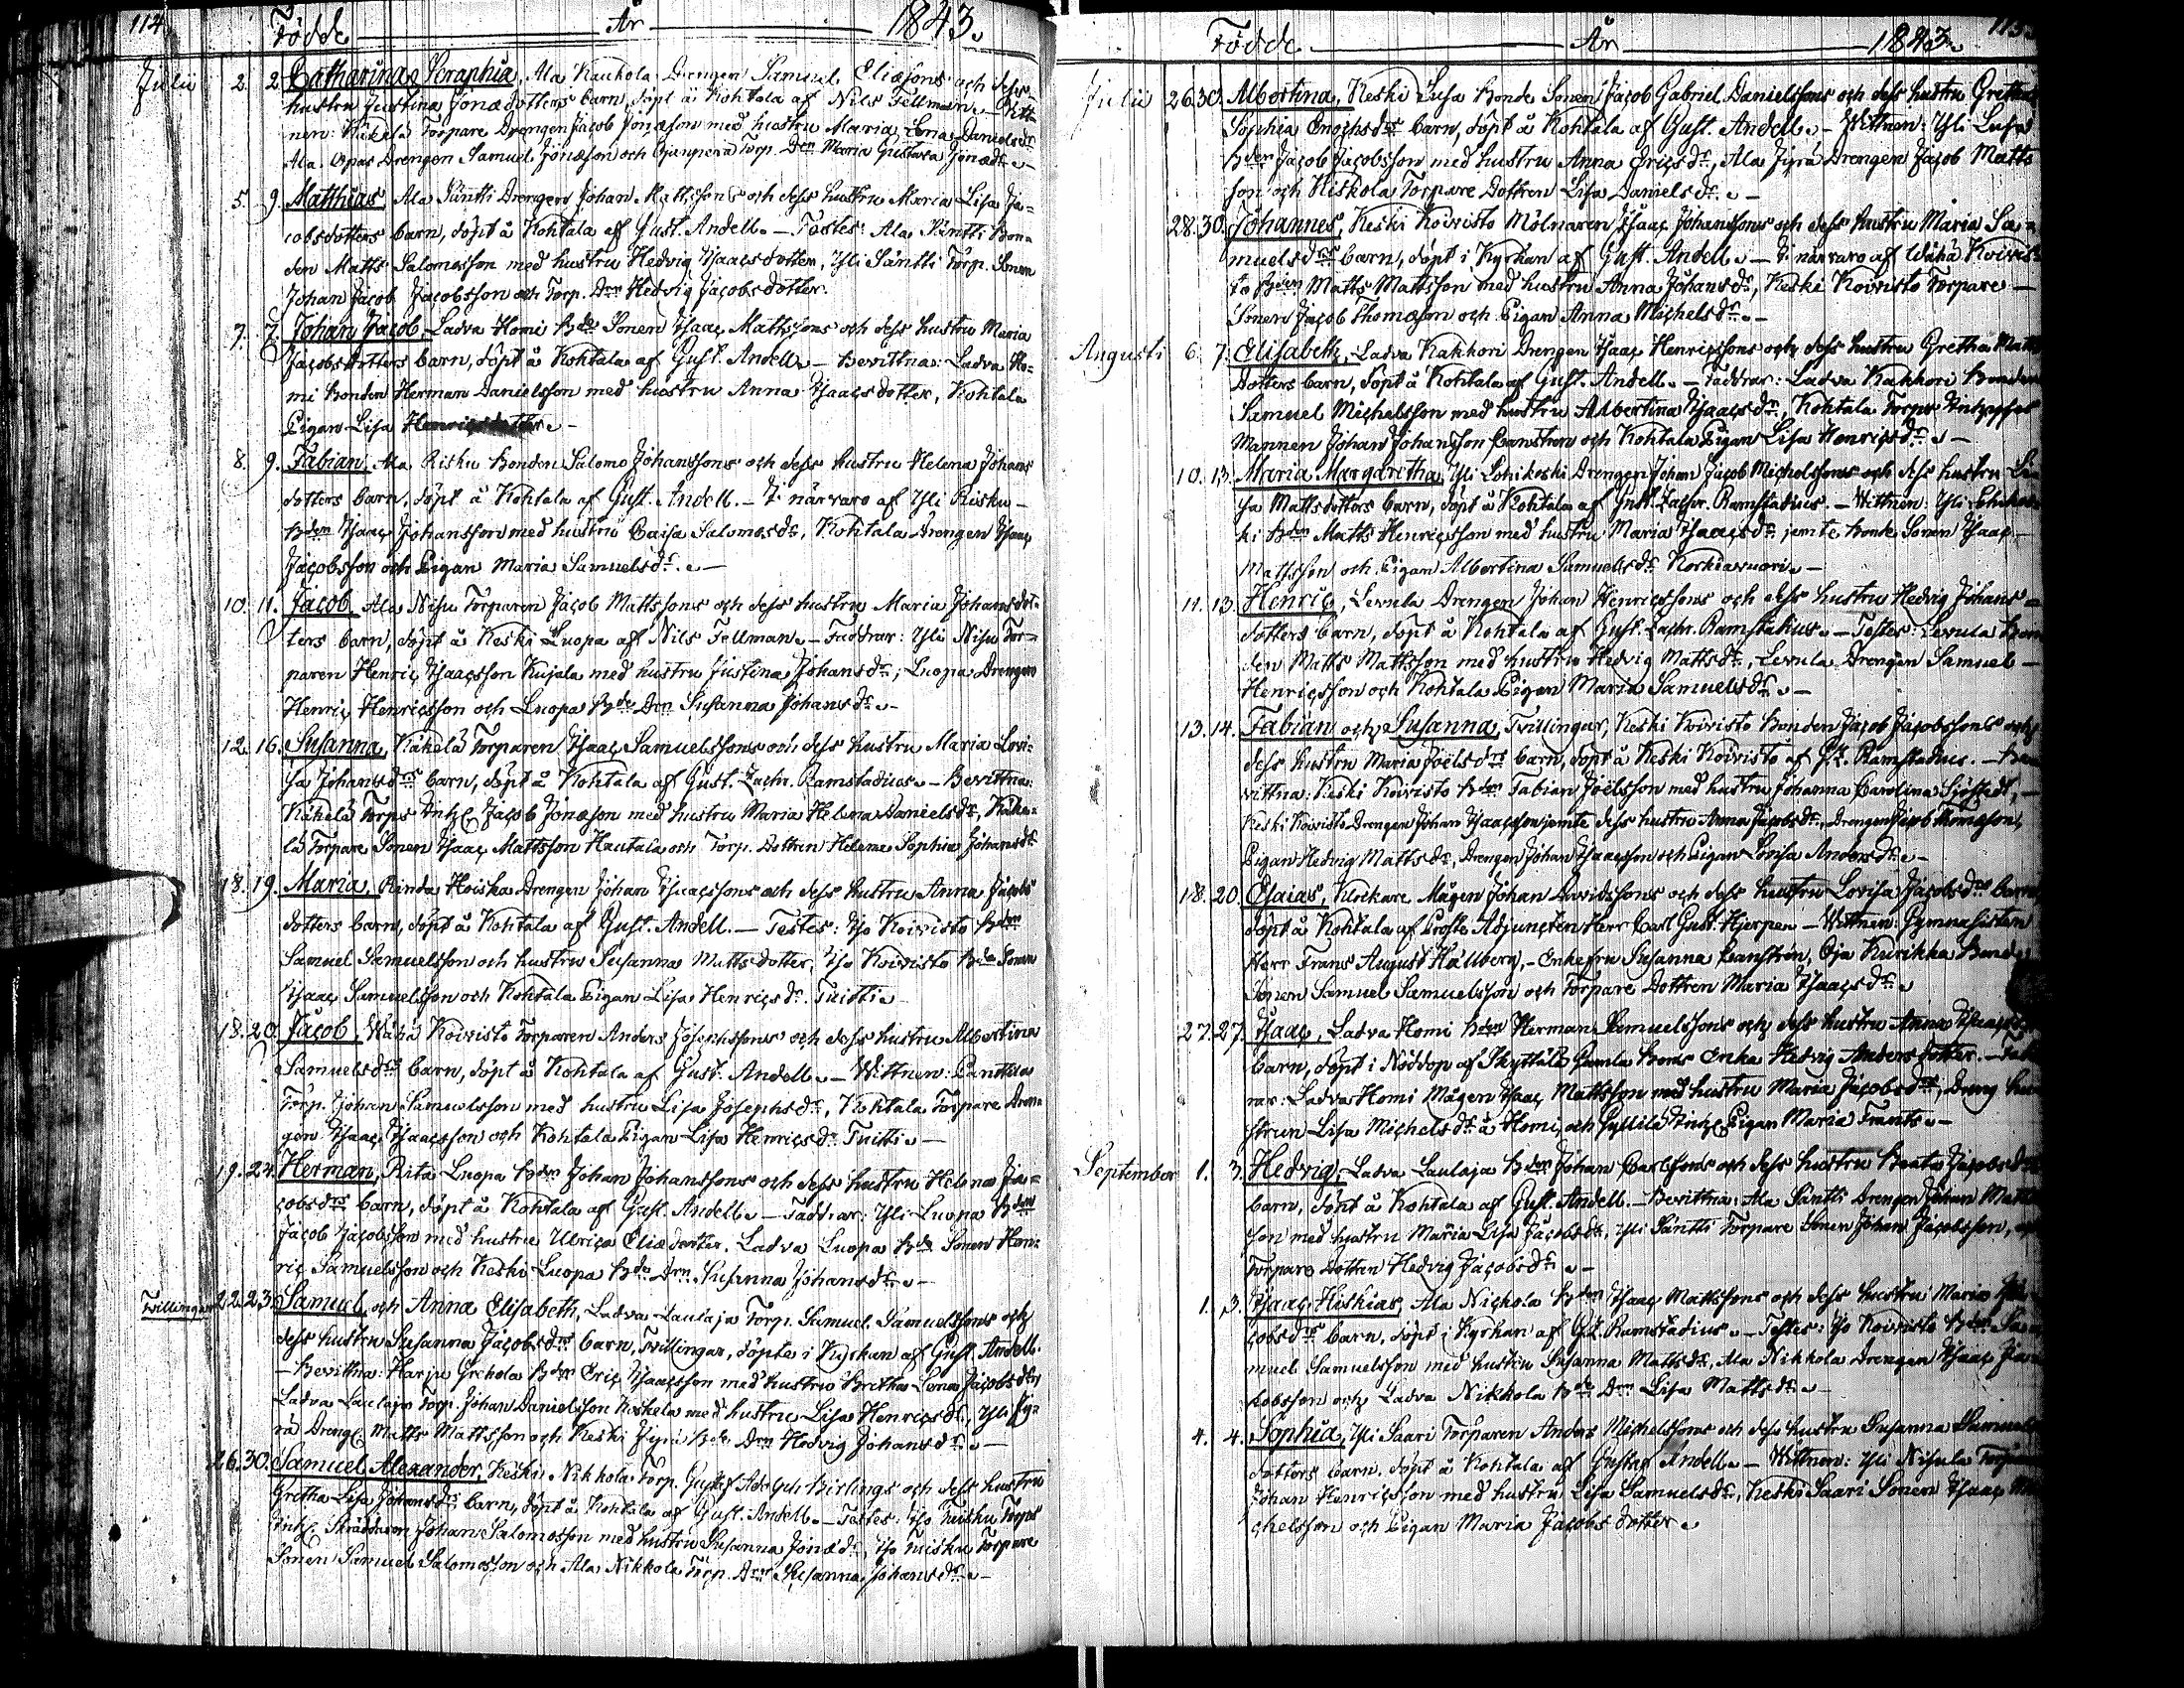 114.
Födde År 1843.
Julii 2. 2. Catharina Seraphia, Ala Kauhola Drengen Samuel Eliæsons och dess
hustru Justina Jonædotters barn, döpt å Kohtala af Nils Fellman. - Witt-
nen: Käkelä Torpare Drengen Jacob Jonæson med hustru Maria Lena Danielsdr
Ala Opas Drengen Samuel Jonæson och Torp. Drn Maria Gustava Jonædr. -
5. 9. Matthias, Ala Säntti Drengen Johan Mattssons och dess hustru Maria Lisa Ja-
cobsdotters barn, döpt å Kohtala af Gust. Andell. - Testes: Ala Säntti Bon-
den Matts Salomosson med hustru Hedvig Isaacsdotter, Yli Säntti Torp. Sonen
Johan Jacob Jacobsson och Torp. Drn Hedvig Jacobsdotter.
7. 7. Johan Jacob, Ladva Homi Bde Sonen Isaac Mattssons och dess hustru Maria
Jacobsdotters barn, döpt å Kohtala af Gust. Andell. - Bevittna: Ladva Ho-
mi Bonden Herman Danielsson med hustru Anna Isaacsdotter, Kohtala
Pigan Lisa Henricsdotter. -
8. 9. Fabian, Ala Risku Bonden Salomo Johanssons och dess hustru Helena Johans
dotters barn, döpt å Kohtala af Gust. Andell. - I närvaro af Yli Risku -
Bden Isaac Johansson med hustru Caisa Salomosdr, Kohtala Drengen Isaac
Jacobsson och Pigan Maria Samuelsdr. -
10. 11. Jacob, Ala Nisu Torparen Jacob Mattssons och dess hustru Maria Johansdot-
ters barn, döpt å Keski Luopa af Nils Fellman. - Faddrar: Yli Nisu Tor-
paren Henric Isaacsson Kujala med hustru Justina Johansdr, Luopa Drengen
Henric Henricsson och Luopa Bde Drn Susanna Johansdr. -
12. 16. Susanna, Käkelä Torparen Isaac Samuelssons och dess hustru Maria Lovi-
sa Johansdrs barn, döpt å Kohtala af Gust. Zachr. Ramstadius. - Bevittna:
Käkelä Torps Inh. Jacob Jonæson med hustru Maria Helena Danielsdr, Käke-
lä Torpare Sonen Isaac Mattsson Hautala och Torp. Dottren Helena Sophia Johansdr
18. 19. Maria, Rinda Hoiska Drengen Johan Isaacssons och dess hustru Anna Jacobs
dotters barn, döpt å Kohtala af Gust. Andell. - Testes: Iso Koivisto Bden
Samuel Samuelsson och hustru Susanna Mattsdotter, Iso Koivisto Bde Sonen
Isaac Samuelsson och Kohtala Pigan Lisa Henricsdr. Tuitti. -
18. 20. Jacob, Wähä Koivisto Torparen Anders Josephssons och dess hustru Albertina
Samuelsdrs barn, döpt å Kohtala af Gust. Andell. - Wittnen: Panttila
Torp. Johan Samuelsson med hustru Lisa Josephsdr, Kohtala Torpare Dren-
gen Isaac Isaacsson och Kohtala Pigan Lisa Henricsdr Tuitti. -
19. 24. Herman, Rita Luopa Bden Johan Johanssons och dess hustru Helena Ja-
cobsdrs barn, döpt å Kohtala af Gust. Andell. - Faddrar: Yli Luopa Bden
Jacob Jacobsson med hustru Ulrica Eliædotter, Ladva Luopa Bde Sonen Hen-
ric Samuelsson och Keski Luopa Bde Drn Susanna Johansdr. -
Tvillingar 22. 23. Samuel och Anna Elisabeth, Ladva Laulaja Torp. Samuel Samuelssons och
dess hustru Susanna Jacobsdrs barn, Tvillingar, döpte i Kyrkan af Gust. Andell.
- Bevittna: Harju Grekola Bden Eric Isaacsson med hustru Bretha Lena Jacobsdr,
Ladva Laulaja Torp. Johan Danielsson Koskela med hustru Lisa Henricsdr, Yli Jy-
rä Dreng. Matts Mattsson och Keski Jyrä Bde Drn Hedvig Johansdr. -
26. 30. Samuel Alexander, Keski Nikkola Torp. Gustaf Adolph Birlings och dess hustru
Gretha Lisa Johansdrs barn, döpt å Kohtala af Gust. Andell. - Testes: Iso Tuisku Torps
Inh. Skräddaren Johan Salomosson med hustru Susanna Jonædr, Iso Tuisku Torpare
Sonen Samuel Salomosson och Ala Nikkola Torp. Drn Susanna Johansdr. -
115.
Födde År 1843.
Julii 26. 30. Albertina, Keski Lusa Bonde Sonen Jacob Gabriel Danielssons och dess hustru Gretha
Sophia Enochsdrs barn, döpt å Kohtala af Gust. Andell. - Wittnen: Yli Lusa
Bden Jacob Jacobsson med hustru Anna Ericsdr, Ala Jyrä Drengen Jacob Matts
son och Kiskola Torpare Dottren Lisa Danielsdr. -
28. 30. Johannes, Keski Koivisto Mölnaren Isaac Johanssons och dess hustru Maria Sa-
muelsdrs barn, döpt i Kyrkan af Gust. Andell. - I närvaro af Wähä Koivis-
to Bden Matts Mattsson med hustru Anna Johansdr, Keski Koivisto Torpare -
Sonen Jacob Thomæson och Pigan Anna Michelsdr. -
Augusti 6. 7. Elisabeth, Ladva Kakkori Drengen Isaac Henricssons och dess hustru Gretha Matts
dotters barn, döpt å Kohtala af Gust. Andell. - Faddrar: Ladva Kakkori Bonden
Samuel Michelsson med hustru Albertina Isaacsdr, Kohtala Torps
Mannen Johan Johansson Canstren och Kohtala Pigan Lisa Henricsdr. -
10. 13. Maria Margaretha, Yli Drengen Johan Jacob Michelssons och dess hustru Lo-
sa Mattsdotters barn, döpt å Kohtala af Gust. Zachr. Ramstadius. - Wittnen: Yli
ki Bden Matts Henricsson med hustru Maria Isaacsdr, jemte Bonde Sonen Isaac -
Mattsson och Pigan Albertina Samuelsdr Korkiavuori. -
11. 13. Henric, Levula Drengen Johan Henricssons och dess hustru Hedvig Johans -
dotters barn, döpt å Kohtala af Gust. Zachr. Ramstadius. - Testes: Levula Bon
den Matts Mattsson med hustru Hedvig Mattsdr, Levula Drengen Samuel -
Henricsson och Kohtala Pigan Maria Samuelsdr. -
13. 14. Fabian och Susanna, Tvillingar, Keski Koivisto Bonden Jacob Jacobssons och
dess hustru Maria Joëlsdrs barn, döpt å Keski Koivisto af G. Z. Ramstadius. - Be
vittna: Keski Koivisto Bden Fabian Joëlsson med hustru Johanna Carolina Sjöstedt, -
Keski Koivisto Drengen Johan Isaacsson jemte dess hustru Anna Jacobsdr, Drengen Jacob Thomæson,
Pigan Hedvig Mattsdr, Drengen Johan Isaacsson och Pigan Lovisa Andersdr. -
18. 20. Esaias, Klockare Mågen Johan Davidssons och dess hustru Lovisa Jacobsdrs barn
döpt å Kohtala af Prosts Adjuncten Herr Carl Gust. Hjerpen - Wittnen: Gymnasisten
Herr Frans August Hällberg, - Enkefru Susanna Canstrén, Oja Kurikka Bonde
Sonen Samuel Samuelsson och Torpare Dottren Maria Isaacsdr. -
27. 27. Isaac, Ladva Homi Bden Herman Samuelssons och dess hustru Anna Isaacs
barn, döpt i Nöddop af Skyttälä Gamla Bonde Enka Hedvig Andersdotter. - Fadd
rar: Ladva Homi Mågen Isaac Mattsson med hustru Maria Jacobsdr, Dreng hu
strun Lisa Michelsdr å Homi, och Gyllilä Inh. Pigan Maria Frants. -
September 1. 3. Hedvig, Ladva Laulaja Bden Johan Carlssons och dess hustru Beata Jacobsdrs
barn, döpt å Kohtala af Gust. Andell. - Bevittna: Ala Säntti Drengen Johan Matts
son med hustru Maria Lisa Jacobsdr, Yli Säntti Torpare Sonen Johan Jacobsson, och
Torpare Dottren Hedvig Jacobsdr. -
1. 3. Isaac Hiskias, Ala Nickola Bden Isaac Mattssons och dess hustru Maria Ja
cobsdrs barn, döpt i Kyrkan af G. Z. Ramstadius. - Testes: Iso Koivisto Bden Sa
muel Samuelsson med hustru Susanna Mattsdr, Ala Nikkola Drengen Isaac Ja
kobsson och Ladva Nikkola Bde Drn Lisa Mattsdr. -
4. 4. Sophia, Yli Saari Torparen Anders Michelssons och dess hustru Susanna Samuels
dotters barn, döpt å Kohtala af Gustaf Andell. - Wittnen: Yli Nisula Torparen
Johan Henricsson med hustru Lisa Samuelsdr, Keski Saari Sonen Isaac Mi
chelsson och Pigan Maria Jacobsdotter. -